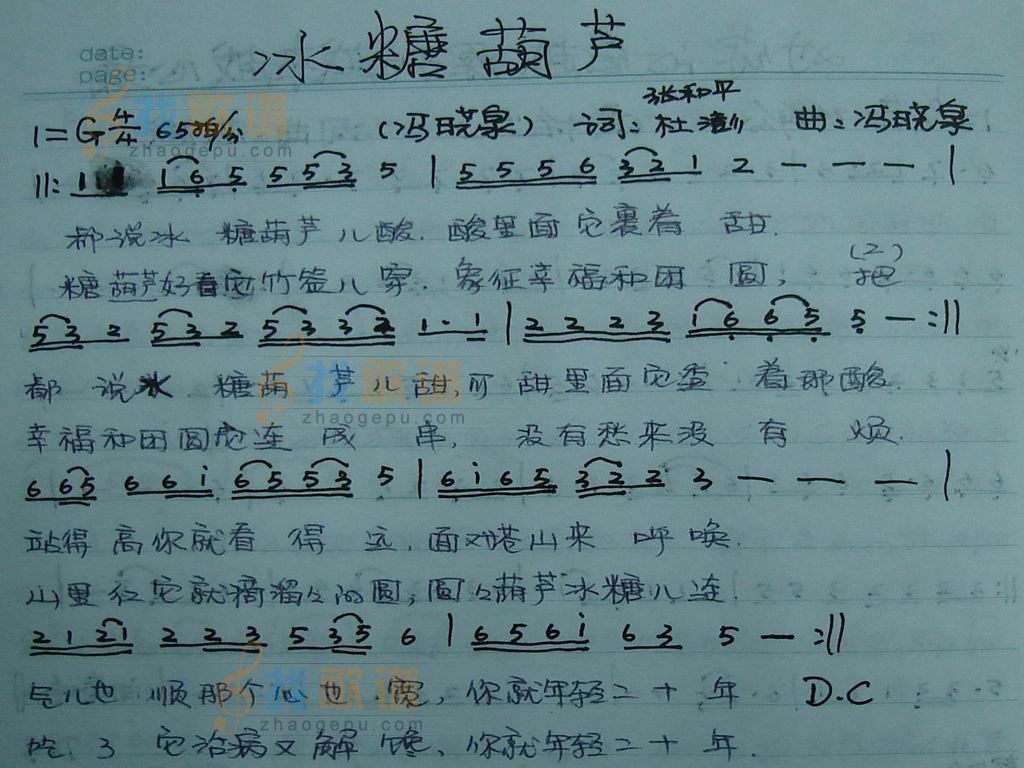 date:
page:
冰糖葫芦
张和平
1=G 4/4 65拍/分 (冯晓泉) 词: 杜澎 曲:冯晓泉
找歌谱
zhaogepu.com
||: 1 1 1 6 5 5 5 3 5 | 5 5 5 6 3 2 1 2 — — — |
都说冰 糖葫芦儿酸. 酸里面它裹着 甜.
(2)
糖葫芦好看它竹签儿穿. 象征幸福和团 圆, 把
5 3 2 5 3 2 5 3 3 2 1 · 1 | 2 2 2 3 1 6 6 5 5 — :||
都 说冰 糖葫 芦儿甜,可 甜里面它透 着那酸.
找歌谱
zhaogepu.com
幸福和团圆它连 成 串, 没有愁来没 有 烦.
6 6 5 6 6 i 6 5 5 3 5 | 6 i 6 5 3 2 2 3 — — — |
站得 高你就看 得 远, 面对苍山来 呼 唤.
山里红它就滴溜々的圆, 圆々葫芦冰糖儿连
2 1 2 1 2 2 3 5 3 5 6 | 6 5 6 i 6 3 5 — :||
气儿也 顺那个心也 宽, 你就年轻二十 年 D.C
找歌谱
zhaogepu.com
吃 了 它治病又解 馋, 你就年轻二十 年.